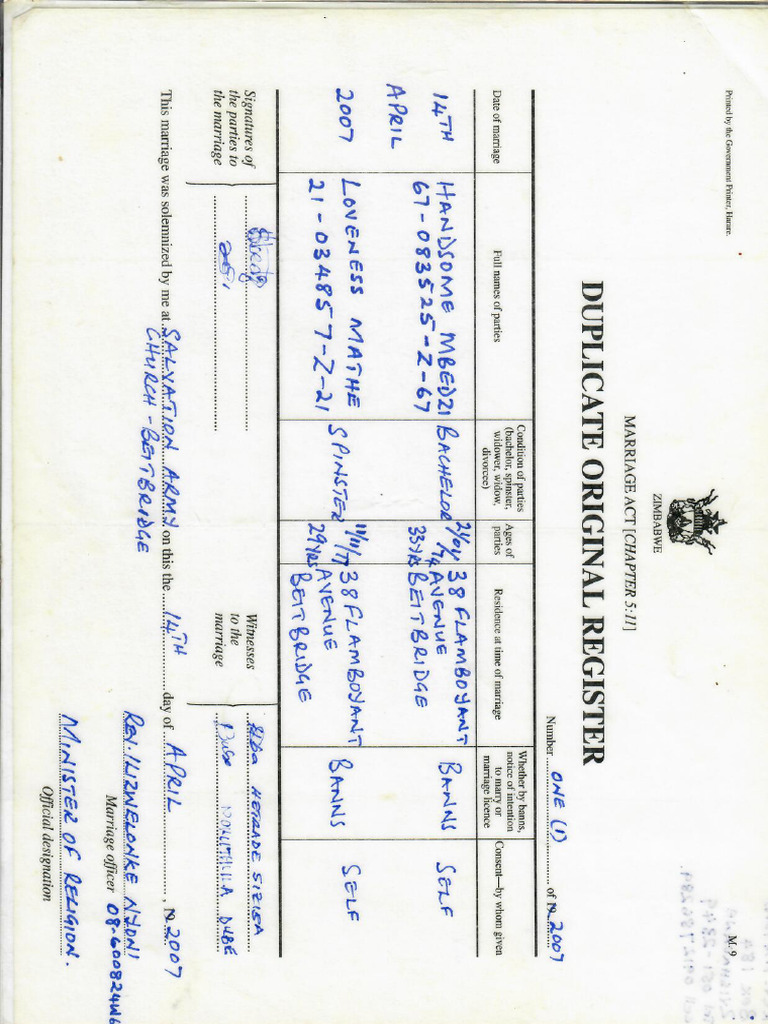 Printed by the Government Printer, Harare.
M. 9
ZIMBABWE
MARRIAGE ACT [CHAPTER 5:11]
DUPLICATE ORIGINAL REGISTER
Number ONE (1) of 2007
Date of marriage
Full names of parties
Condition of parties (bachelor, spinster, widower, widow, divorcee)
Ages of parties
Residence at time of marriage
Whether by banns, notice of intention to marry or marriage licence
Consent—by whom given
14TH
APRIL
2007
HANDSOME MBEDZI
67-083525-Z-67
BACHELOR
21/04/74
33YRS
38 FLAMBOYANT
AVENUE
BEITBRIDGE
BANNS
SELF
LOVENESS MATHE
21-034857-Z-21
SPINSTER
11/11/77
29YRS
38 FLAMBOYANT
AVENUE
BEITBRIDGE
BANNS
SELF
Signatures of
the parties to
the marriage
Witnesses
to the
marriage
SIZIBA
DUBE
This marriage was solemnized by me at SALVATION ARMY on this the 14TH day of APRIL, 2007
CHURCH - BEITBRIDGE
REV. NJONI
Marriage officer 08-600824W6
MINISTER OF RELIGION.
Official designation